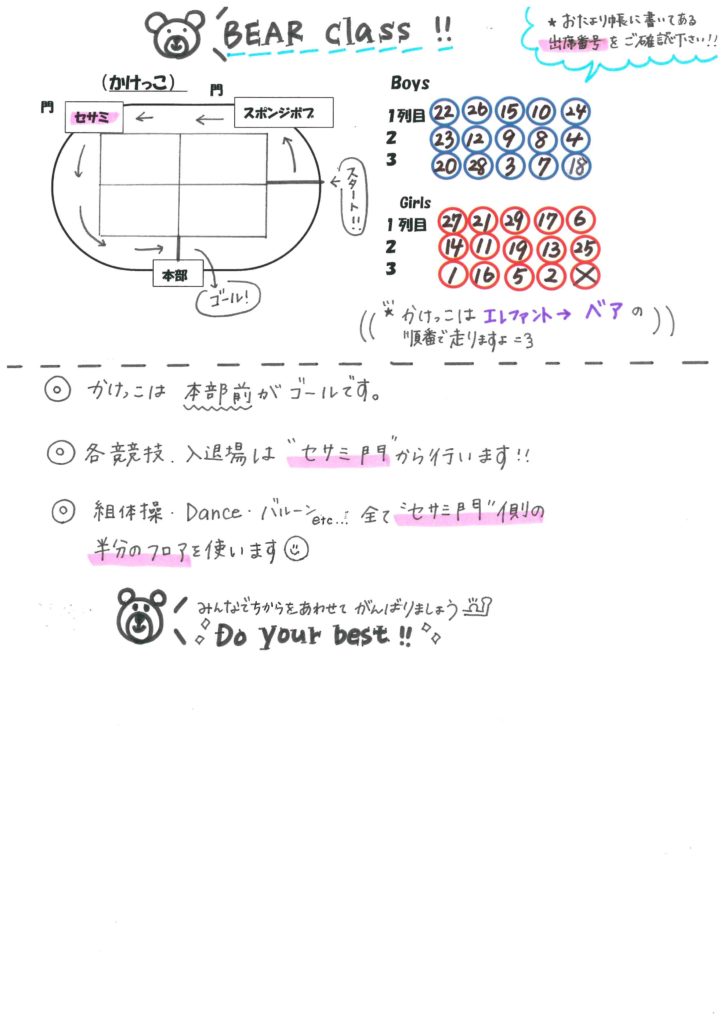 BEAR class !!
★おたより帳に書いてある
出席番号をご確認下さい!!
(かけっこ)
門
門
セサミ
スポンジボブ
スタート!!
本部
ゴール!
Boys
1列目 22 26 15 10 24
2 23 12 9 8 4
3 20 28 3 7 18
Girls
1列目 27 21 29 17 6
2 14 11 19 13 25
3 1 16 5 2 ×
((※かけっこは エレファント→ ベア の
順番で走りますよ=3))
◎ かけっこは 本部前が ゴールです。
◎ 各競技、入退場は "セサミ門"から行います!!
◎ 組体操・Dance・バルーンetc... 全て"セサミ門"側の
半分のフロアを使います
みんなでちからをあわせて がんばりましょう
Do your best !!